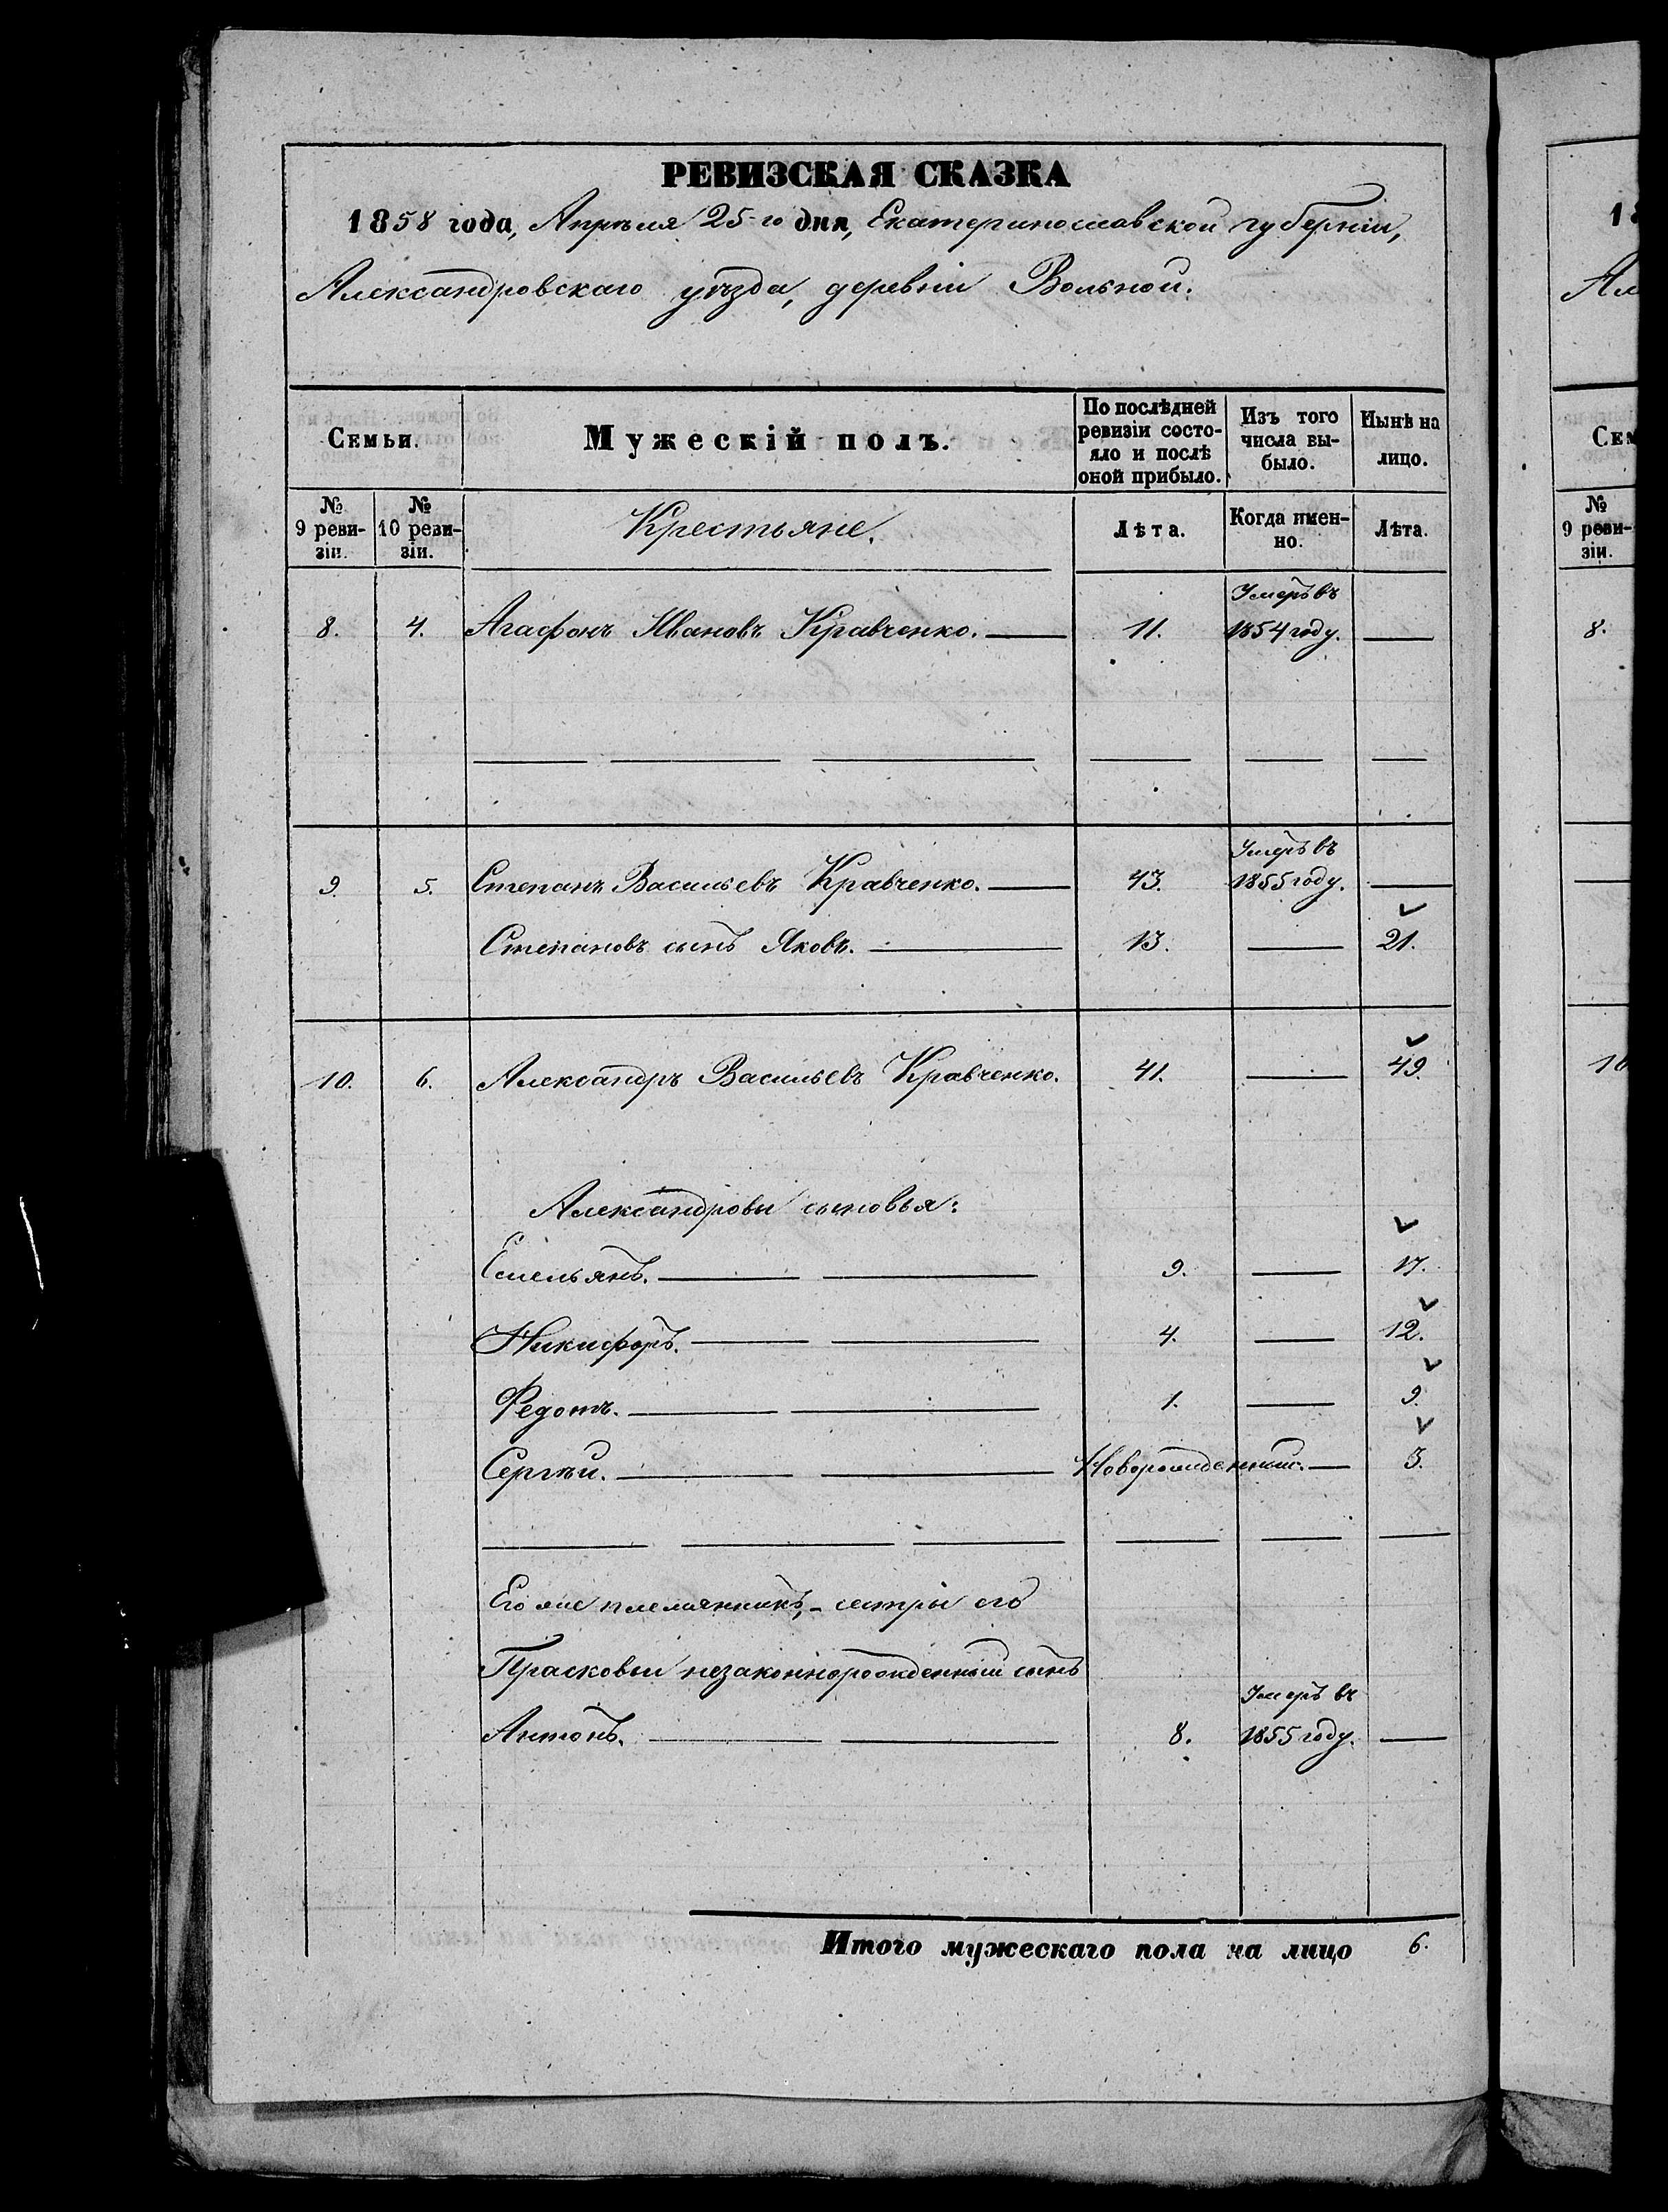 РЕВИЗСКАЯ СКАЗКА
1858 года, Апрѣля 25-го дня, Екатеринославской губерніи,
Александровскаго уѣзда, деревни Вольной.
Семьи. Мужескій полъ. По послѣдней ревизіи состояло и послѣ оной прибыло. Изъ того числа выбыло. Нынѣ на лицо.
№ 9 ревизіи. № 10 ревизіи. Крестьяне. Лѣта. Когда именно. Лѣта.
Умеръ въ
8. 4. Агафонъ Ивановъ Кравченко. — 11. 1854 году. —
Умеръ въ
9. 5. Степанъ Васильевъ Кравченко. — 43. 1855 году. —
Степановъ сынъ Яковъ. — 13. — 21.
10. 6. Александръ Васильевъ Кравченко. 41. — 49.
Александровы сыновья:
Емельянъ. — 9. — 17.
Никифоръ. — 4. — 12.
Федотъ. — 1. — 9.
Сергѣй. — Новорожденный. — 3.
Его же племянникъ, - сестры его
Прасковьи незаконнорожденный сынъ
Умеръ въ
Антонъ. — 8. 1855 году. —
Итого мужескаго пола на лицо 6.
18
Ал
Сем
№
9 реви-
зіи.
8.
10